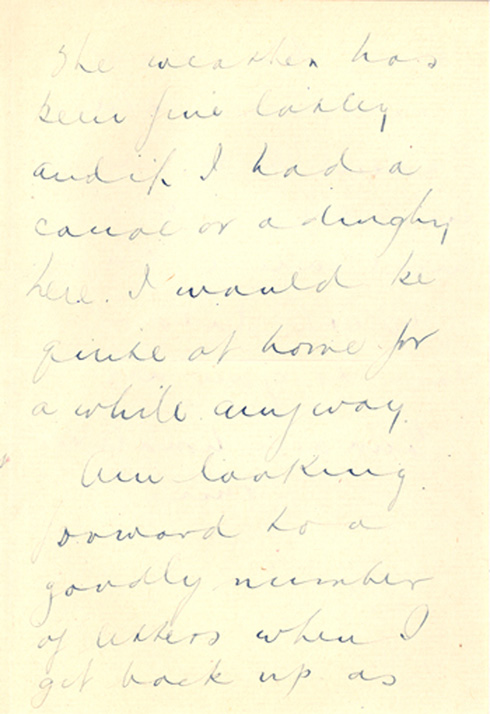 The weather has
been fine lately
and if I had a
canoe or a dinghy
here. I would be
quite at home for
a while anyway.
Am looking
forward to a
goodly number
of letters when I
get back up as